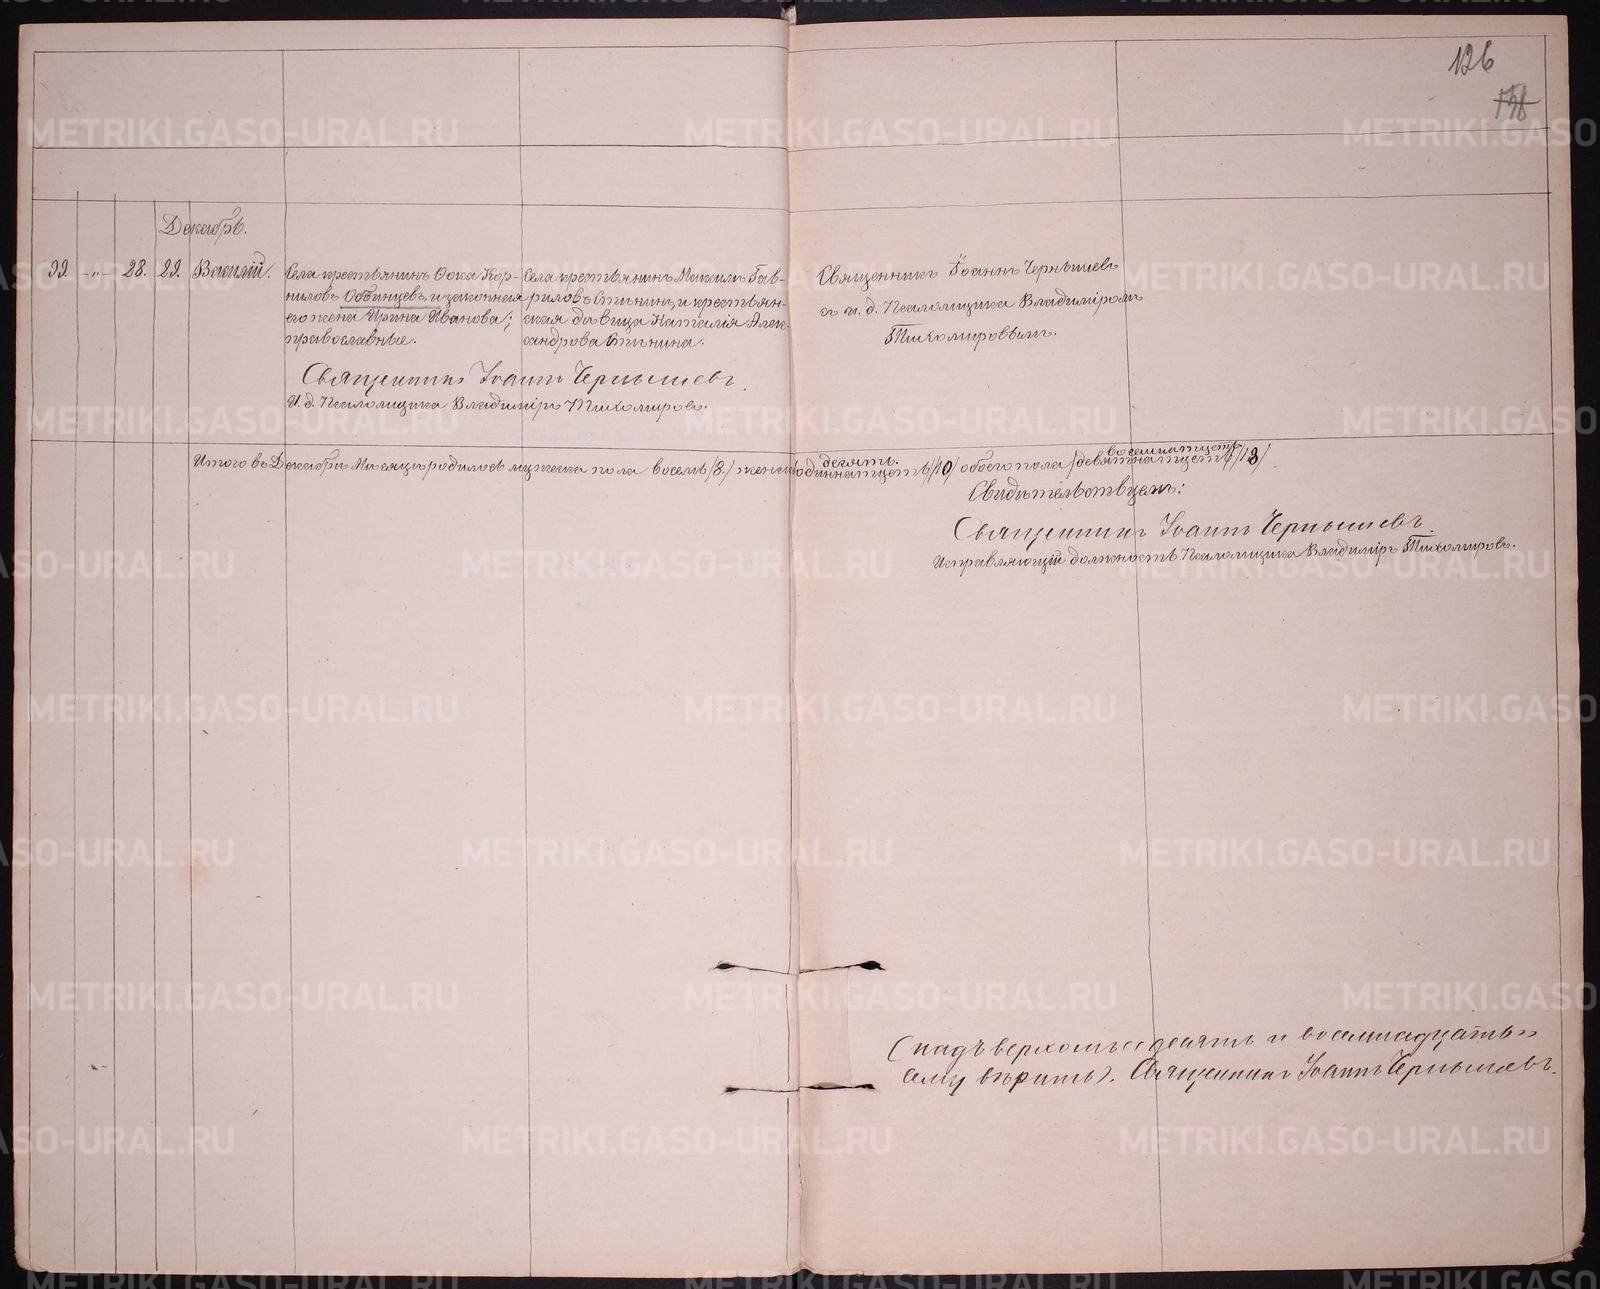 126
Декабрь.
99. -„- 28. 29. Василій.
Села крестьянинъ Фока Кор-
ниловъ Обвинцевъ и законная
его жена Ирина Иванова;
православные.
Села крестьянинъ Максимъ Гав-
риловъ Стининъ, и крестьян-
ская дѣвица Наталія Алек-
сандрова Стинина.
Священникъ Іоаннъ Чернышевъ
съ и. д. Псаломщика Владиміромъ
Тихомировымъ.
Священникъ Іоаннъ Чернышевъ.
И. д. Псаломщика Владиміръ Тихомировъ.
десять. восемнатцеть
Итого въ Декабрѣ Месяцѣ родилось мужеска пола восемь /8/ женска одиннатцеть /10/ обоего пола /девятнатцеть /18/.
Свидѣтельствуемъ:
Священникъ Іоаннъ Чернышевъ.
Исправляющій должность Псаломщика Владиміръ Тихомировъ.
(надъ верхомъ „десять и восемнадцать“
сему вѣрить). Священникъ Іоаннъ Чернышевъ.
METRIKI.GASO-URAL.RU